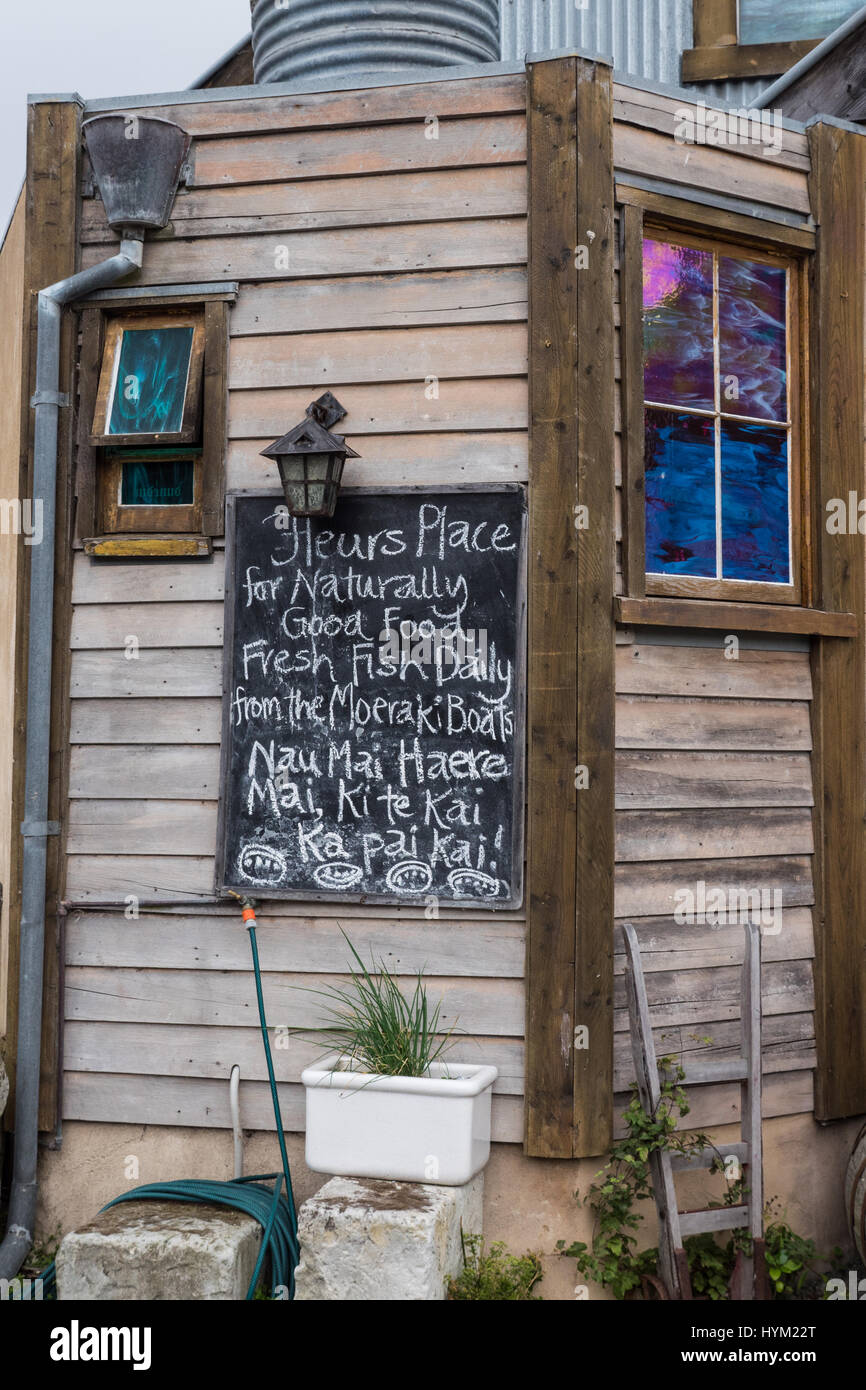 Fleurs Place
for Naturally
Good Food
Fresh Fish Daily
from the Moeraki Boats
Nau Mai Haere
Mai, Ki te Kai
Ka pai Kai!
alamy
alamy
Image ID: HYM22T
www.alamy.com